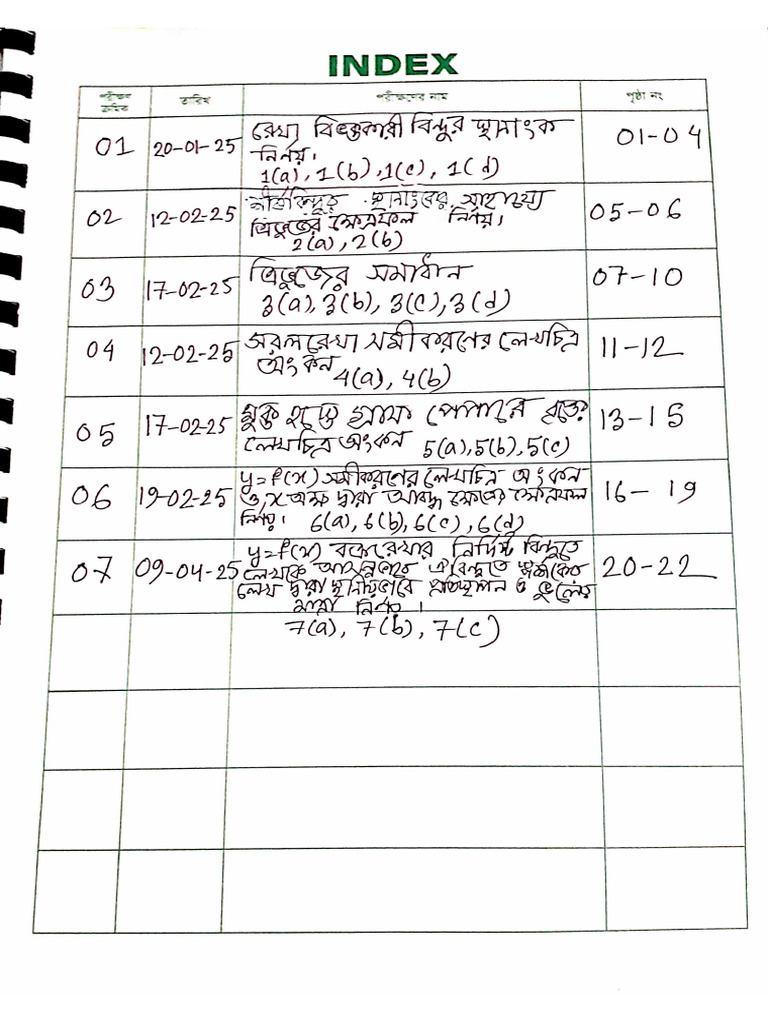 INDEX
পরীক্ষণ ক্রমিক তারিখ পরীক্ষণের নাম পৃষ্ঠা নং
01 20-01-25 রেখা বিভক্তকারী বিন্দুর স্থানাংক 01-04
নির্ণয়।
1(a), 1(b), 1(c), 1(d)
02 12-02-25 শীর্ষবিন্দুর স্থানাংকের সাহায্যে 05-06
ত্রিভুজের ক্ষেত্রফল নির্ণয়।
2(a), 2(b)
03 17-02-25 ত্রিভুজের সমাধান 07-10
3(a), 3(b), 3(c), 3(d)
04 12-02-25 সরলরেখা সমীকরণের লেখচিত্র 11-12
অংকন
4(a), 4(b)
05 17-02-25 হতে গ্রাফ পেপারে বৃত্তের 13-15
লেখচিত্র অংকন 5(a), 5(b), 5(c)
06 19-02-25 y=f(x) সমীকরণের লেখচিত্র অংকন 16-19
ও x অক্ষ দ্বারা আবদ্ধ ক্ষেত্রের ক্ষেত্রফল
নির্ণয়। 6(a), 6(b), 6(c), 6(d)
07 09-04-25 y=f(x) বক্ররেখার নির্দিষ্ট বিন্দুতে 20-22
লেখকে আসন্নভাবে ঐ বিন্দুতে স্পর্শকের
লেখ দ্বারা স্থানীয়ভাবে প্রতিস্থাপন ও ভুলের
মাত্রা নির্ণয়।
7(a), 7(b), 7(c)